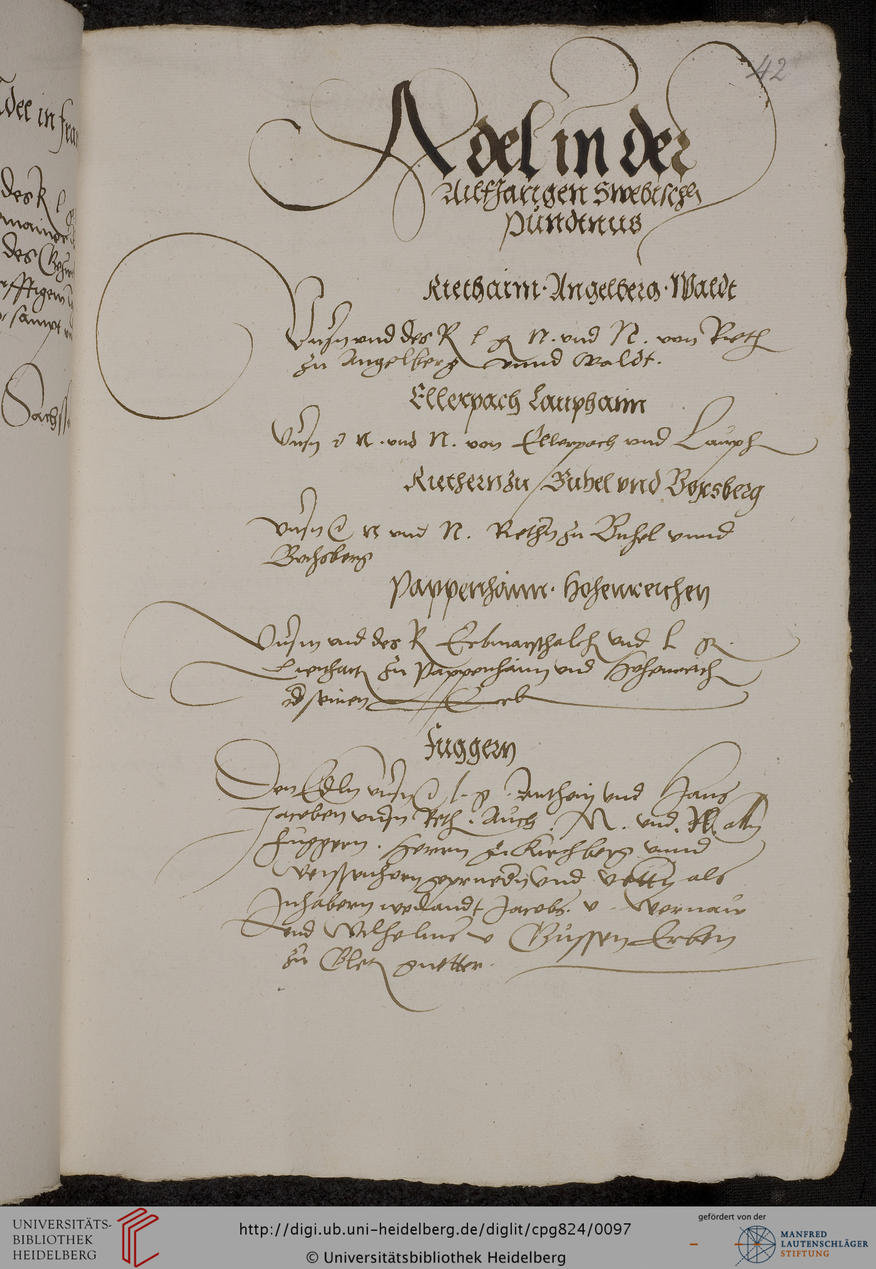 42
Adel in der
Ailfjarigen Swebischen
Pundtnus
Riethaim · Angelberg · Waldt
Unsern und des R l g N. und N. von Rieth
zu Angelberg unnd Waldt.
Ellerpach Lauphaim
Unsern d N. und N. von Ellerpach und Lauph
Riethern zu Buhel und Boxsberg
Unsern und N. Riethern zu Buhel unnd
Bochsberg
Pappenhaim · Hohenreichen
Unserm und des R Erbmarschalch und l g
zu Pappenhaim und Hohenreich
seinen Erb
Fuggern
Den Edln unsern l. g. Anthoni und Hans
Jacoben unsern Reth. Auch. N. und. N. alln
Fuggern. Herrn zu Kirchberg unnd
Weissenhorn gepruedern und vettern als
Inhabern weilandt Jacobs. v. Wernau
und Wilhelms v Güssen Erben
zu guetter.
Adel in
des R l g
des
sampt
Sachss
UNIVERSITÄTS-
BIBLIOTHEK
HEIDELBERG
http://digi.ub.uni-heidelberg.de/diglit/cpg824/0097
© Universitätsbibliothek Heidelberg
gefördert von der
MANFRED
LAUTENSCHLÄGER
STIFTUNG